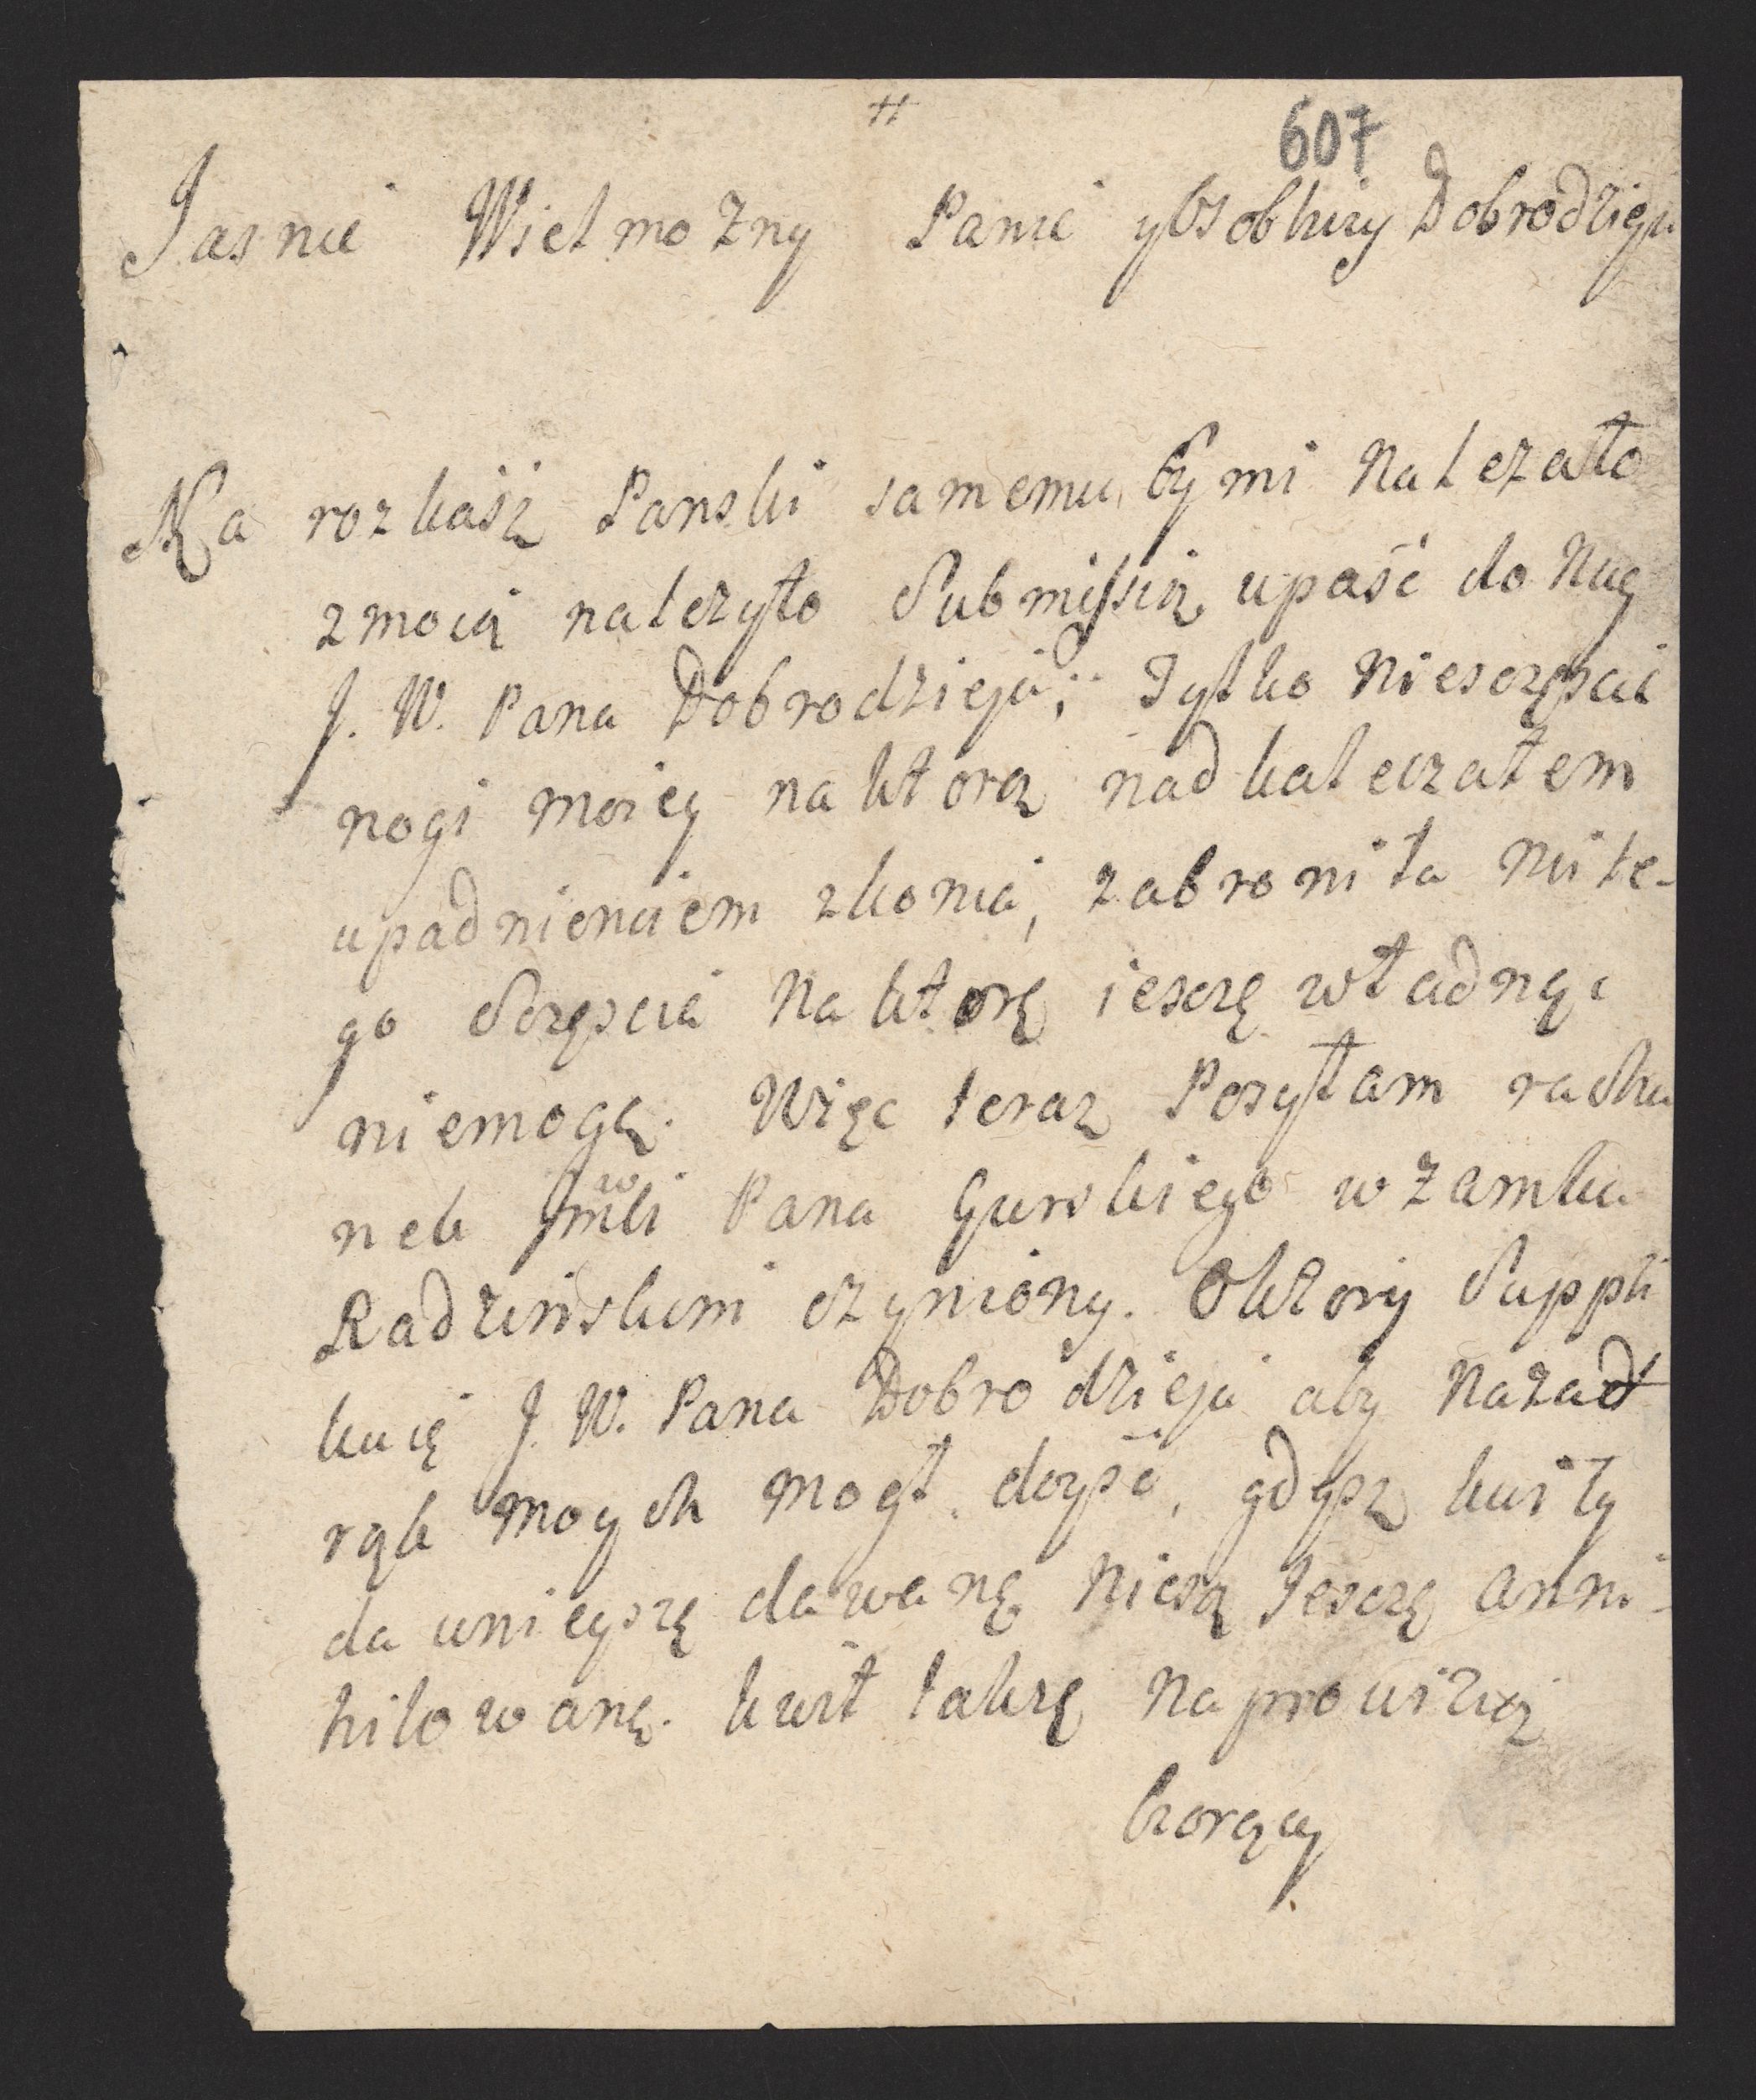 #
607
Jasnie Wielmozny Panie y Osobliwy Dobrodzieju
Na rozkasz Panski samemu by mi nalezało
z moią nalezyto Submissią upaść do Nug
J. W. Pana Dobrodzieja; Tylko Niesczęscie
nogi moiey na ktorą nadkaleczałem
upadnieniem z konia, zabroniła mi te-
go sczęscia na ktorę iesczę władnąc
niemogę. Więc teraz Posyłam rachu
nek Pana Gurskiego w zamku
Radzinskim czyniony. O ktory Suppli
kuię J. W. Pana Dobrodzieja aby nazad
rąk moych mogł doyść, gdysz kwity
dawnieyszę dawanę niesą Jesczę anni-
hilowanę. kwit takzę na prowizią
biorący